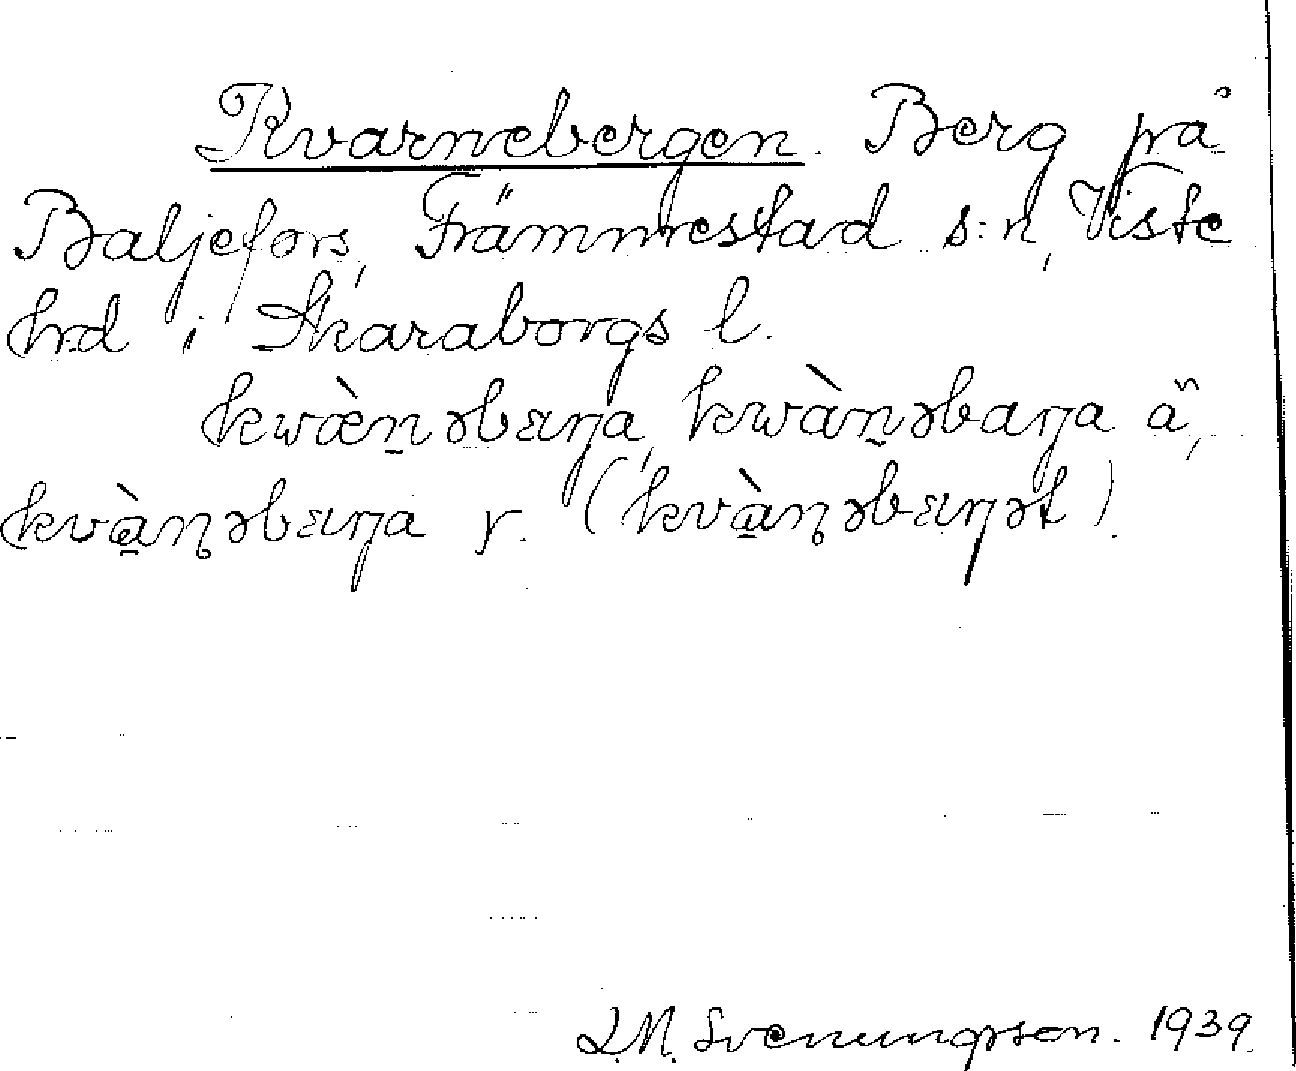 Kvarnebergen. Berg på
Baljefors, Främmestad s:n, Viste
hrd i Skaraborgs l.
kwæ̀n̠əbɛŋa, kwàn̠əbaŋa ä,
kvà̠ɳəbɛŋa y. (kvà̠ɳəbɛŋət).
L.M. Svenungsson. 1939.